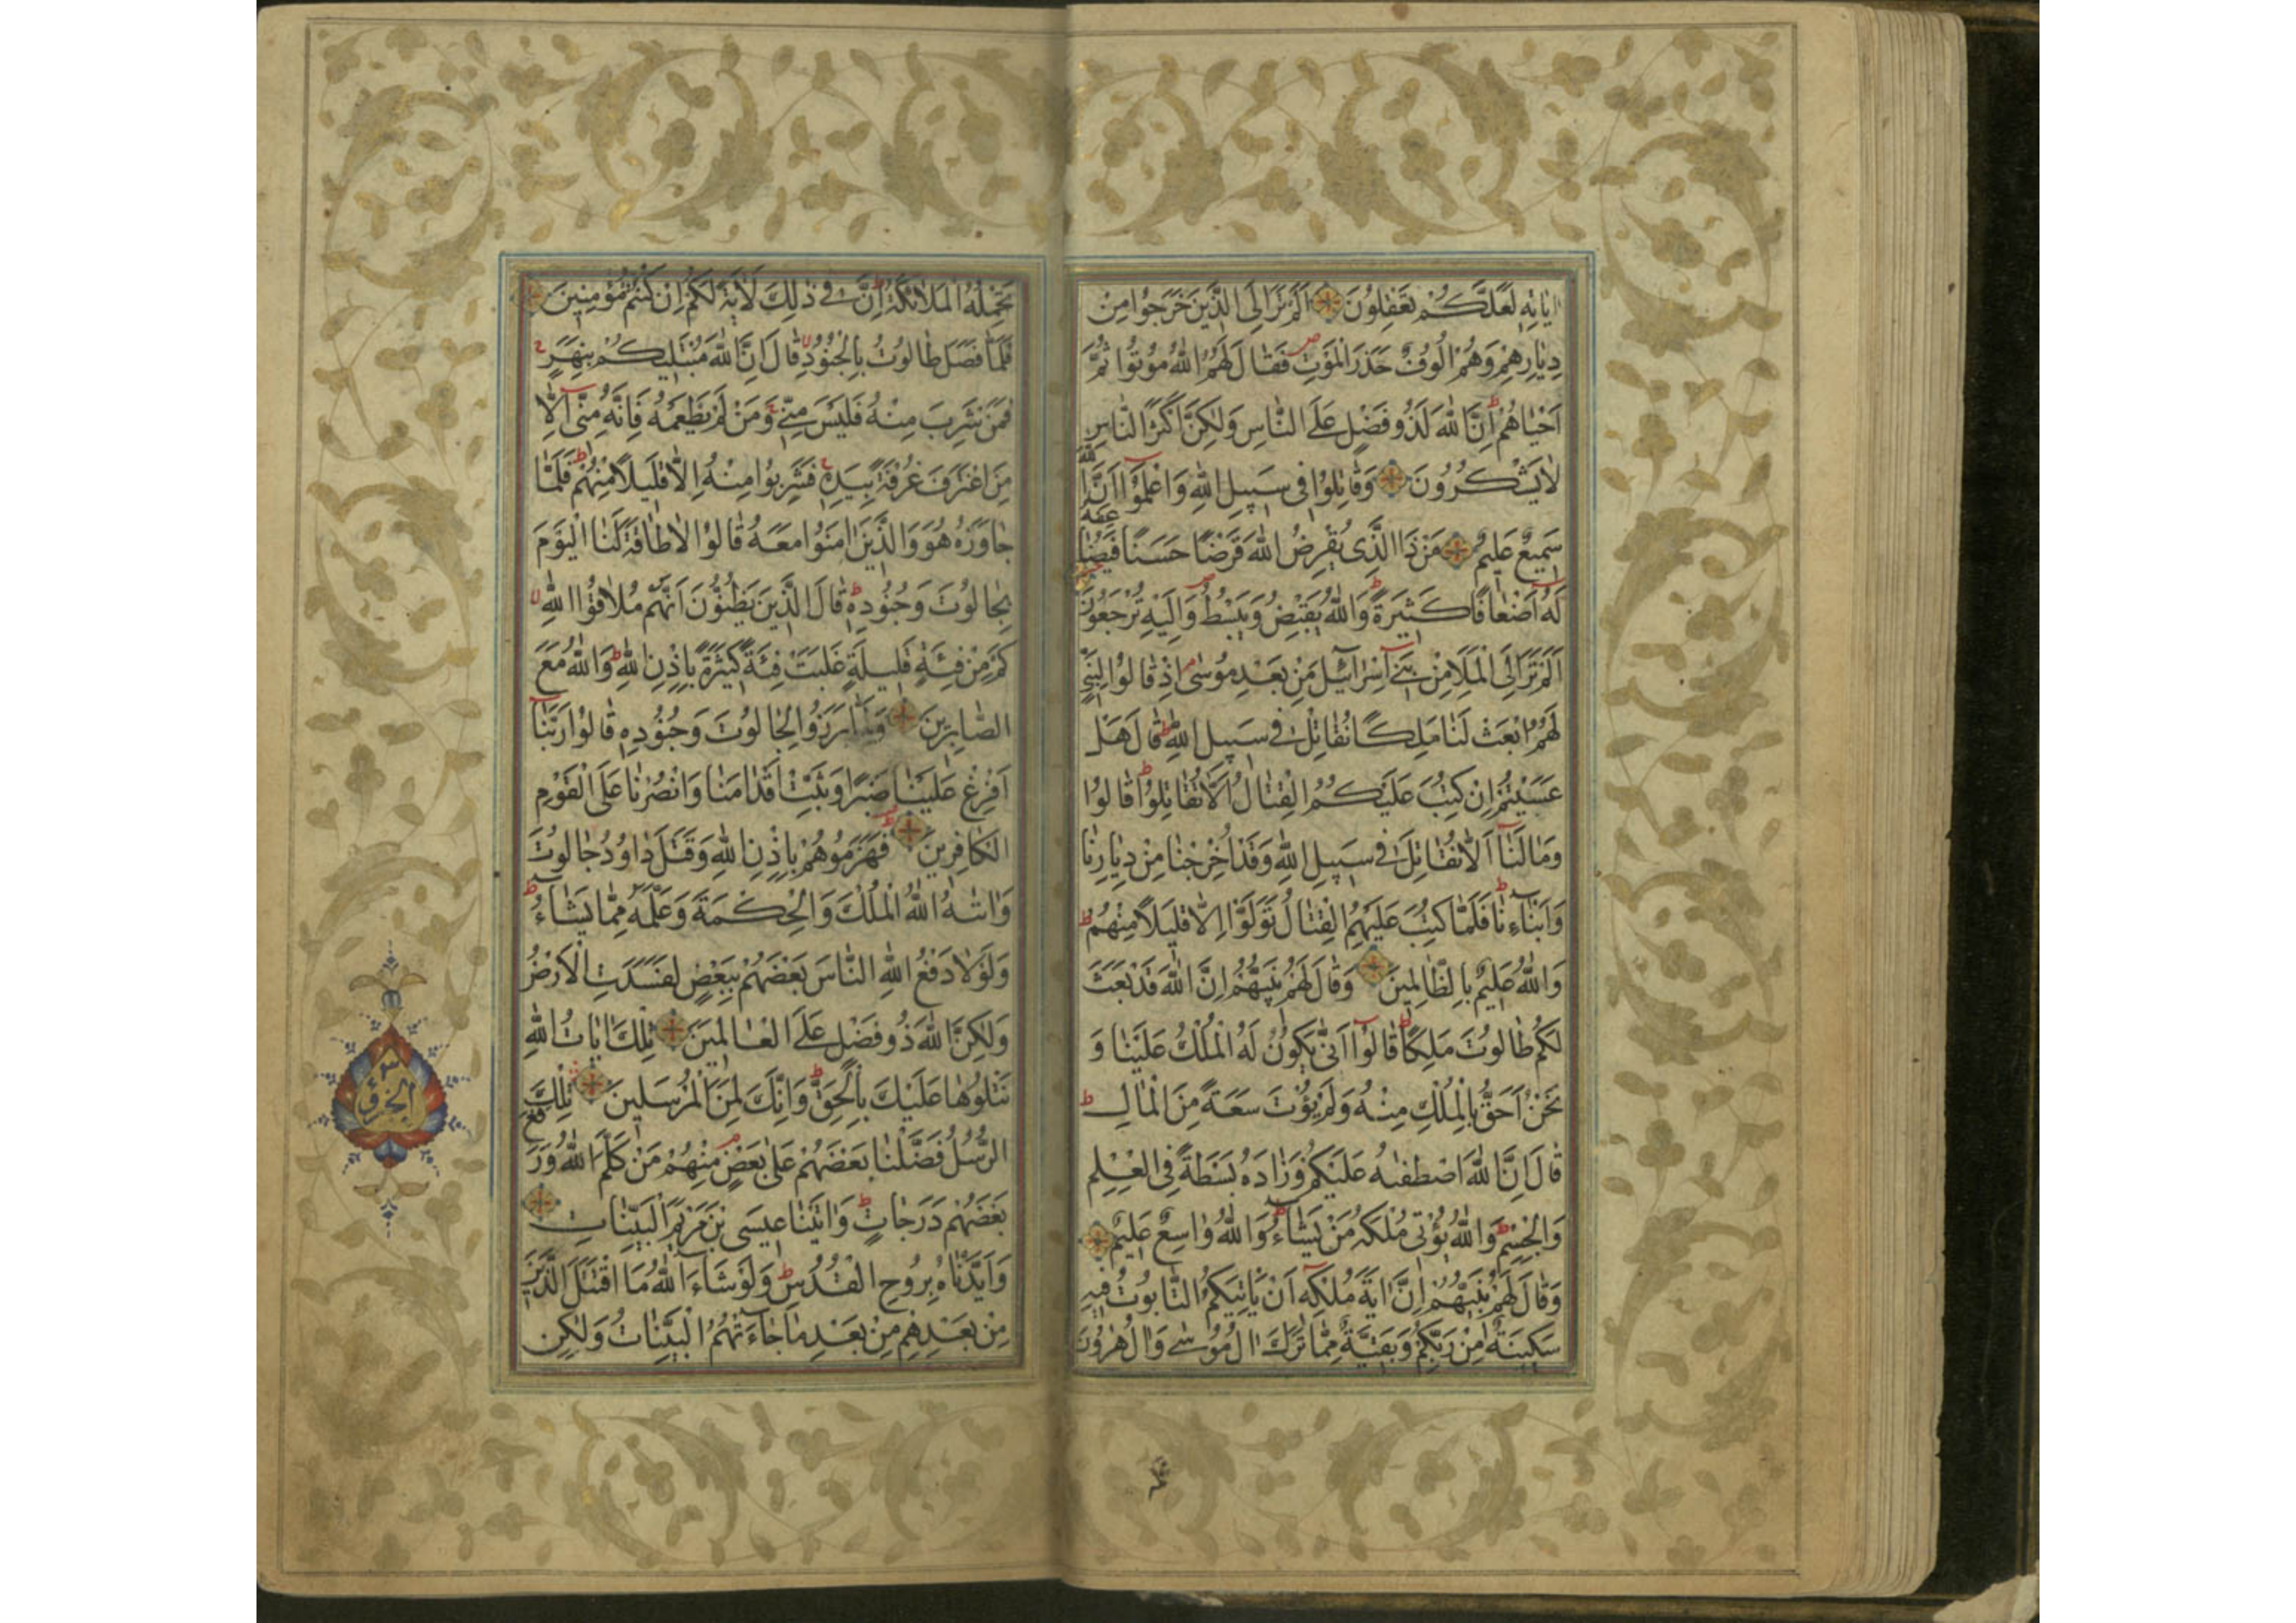 اٰيَاتِهٖ لَعَلَّكُمْ تَعْقِلُونَ اَلَمْ تَرَ اِلَى الَّذِينَ خَرَجُوا مِنْ
دِيَارِهِمْ وَهُمْ اُلُوفٌ حَذَرَ الْمَوْتِ فَقَالَ لَهُمُ اللّٰهُ مُوتُوا ثُمَّ
اَحْيَاهُمْ اِنَّ اللّٰهَ لَذُو فَضْلٍ عَلَى النَّاسِ وَلٰكِنَّ اَكْثَرَ النَّاسِ
لَا يَشْكُرُونَ وَقَاتِلُوا فِى سَبِيلِ اللّٰهِ وَاعْلَمُوا اَنَّ اللّٰهَ
سَمِيعٌ عَلِيمٌ مَنْ ذَا الَّذِى يُقْرِضُ اللّٰهَ قَرْضًا حَسَنًا فَيُضَاعِفَهُ
لَهُ اَضْعَافًا كَثِيرَةً وَاللّٰهُ يَقْبِضُ وَيَبْسُطُ وَاِلَيْهِ تُرْجَعُونَ
اَلَمْ تَرَ اِلَى الْمَلَاِ مِنْ بَنِى اِسْرَائِيلَ مِنْ بَعْدِ مُوسٰى اِذْ قَالُوا لِنَبِىٍّ
لَهُمُ ابْعَثْ لَنَا مَلِكًا نُقَاتِلْ فِى سَبِيلِ اللّٰهِ قَالَ هَلْ
عَسَيْتُمْ اِنْ كُتِبَ عَلَيْكُمُ الْقِتَالُ اَلَّا تُقَاتِلُوا قَالُوا
وَمَا لَنَا اَلَّا نُقَاتِلَ فِى سَبِيلِ اللّٰهِ وَقَدْ اُخْرِجْنَا مِنْ دِيَارِنَا
وَاَبْنَاءِنَا فَلَمَّا كُتِبَ عَلَيْهِمُ الْقِتَالُ تَوَلَّوْا اِلَّا قَلِيلًا مِنْهُمْ
وَاللّٰهُ عَلِيمٌ بِالظَّالِمِينَ وَقَالَ لَهُمْ نَبِيُّهُمْ اِنَّ اللّٰهَ قَدْ بَعَثَ
لَكُمْ طَالُوتَ مَلِكًا قَالُوا اَنّٰى يَكُونُ لَهُ الْمُلْكُ عَلَيْنَا وَ
نَحْنُ اَحَقُّ بِالْمُلْكِ مِنْهُ وَلَمْ يُؤْتَ سَعَةً مِنَ الْمَالِ
قَالَ اِنَّ اللّٰهَ اصْطَفٰىهُ عَلَيْكُمْ وَزَادَهُ بَسْطَةً فِى الْعِلْمِ
وَالْجِسْمِ وَاللّٰهُ يُؤْتِى مُلْكَهُ مَنْ يَشَاءُ وَاللّٰهُ وَاسِعٌ عَلِيمٌ
وَقَالَ لَهُمْ نَبِيُّهُمْ اِنَّ اٰيَةَ مُلْكِهٖ اَنْ يَاْتِيَكُمُ التَّابُوتُ فِيهِ
سَكِينَةٌ مِنْ رَبِّكُمْ وَبَقِيَّةٌ مِمَّا تَرَكَ اٰلُ مُوسٰى وَاٰلُ هٰرُونَ
تَحْمِلُهُ الْمَلَائِكَةُ اِنَّ فِى ذٰلِكَ لَاٰيَةً لَكُمْ اِنْ كُنْتُمْ مُؤْمِنِينَ
فَلَمَّا فَصَلَ طَالُوتُ بِالْجُنُودِ قَالَ اِنَّ اللّٰهَ مُبْتَلِيكُمْ بِنَهَرٍ
فَمَنْ شَرِبَ مِنْهُ فَلَيْسَ مِنِّى وَمَنْ لَمْ يَطْعَمْهُ فَاِنَّهُ مِنِّى اِلَّا
مَنِ اغْتَرَفَ غُرْفَةً بِيَدِهٖ فَشَرِبُوا مِنْهُ اِلَّا قَلِيلًا مِنْهُمْ فَلَمَّا
جَاوَزَهُ هُوَ وَالَّذِينَ اٰمَنُوا مَعَهُ قَالُوا لَا طَاقَةَ لَنَا الْيَوْمَ
بِجَالُوتَ وَجُنُودِهٖ قَالَ الَّذِينَ يَظُنُّونَ اَنَّهُمْ مُلَاقُوا اللّٰهِ
كَمْ مِنْ فِئَةٍ قَلِيلَةٍ غَلَبَتْ فِئَةً كَثِيرَةً بِاِذْنِ اللّٰهِ وَاللّٰهُ مَعَ
الصَّابِرِينَ وَلَمَّا بَرَزُوا لِجَالُوتَ وَجُنُودِهٖ قَالُوا رَبَّنَا
اَفْرِغْ عَلَيْنَا صَبْرًا وَثَبِّتْ اَقْدَامَنَا وَانْصُرْنَا عَلَى الْقَوْمِ
الْكَافِرِينَ فَهَزَمُوهُمْ بِاِذْنِ اللّٰهِ وَقَتَلَ دَاوُدُ جَالُوتَ
وَاٰتٰىهُ اللّٰهُ الْمُلْكَ وَالْحِكْمَةَ وَعَلَّمَهُ مِمَّا يَشَاءُ
وَلَوْلَا دَفْعُ اللّٰهِ النَّاسَ بَعْضَهُمْ بِبَعْضٍ لَفَسَدَتِ الْاَرْضُ
وَلٰكِنَّ اللّٰهَ ذُو فَضْلٍ عَلَى الْعَالَمِينَ تِلْكَ اٰيَاتُ اللّٰهِ
نَتْلُوهَا عَلَيْكَ بِالْحَقِّ وَاِنَّكَ لَمِنَ الْمُرْسَلِينَ تِلْكَ
الرُّسُلُ فَضَّلْنَا بَعْضَهُمْ عَلٰى بَعْضٍ مِنْهُمْ مَنْ كَلَّمَ اللّٰهُ وَرَفَعَ
بَعْضَهُمْ دَرَجَاتٍ وَاٰتَيْنَا عِيسَى بْنَ مَرْيَمَ الْبَيِّنَاتِ
وَاَيَّدْنَاهُ بِرُوحِ الْقُدُسِ وَلَوْ شَاءَ اللّٰهُ مَا اقْتَتَلَ الَّذِينَ
مِنْ بَعْدِهِمْ مِنْ بَعْدِ مَا جَاءَتْهُمُ الْبَيِّنَاتُ وَلٰكِنِ